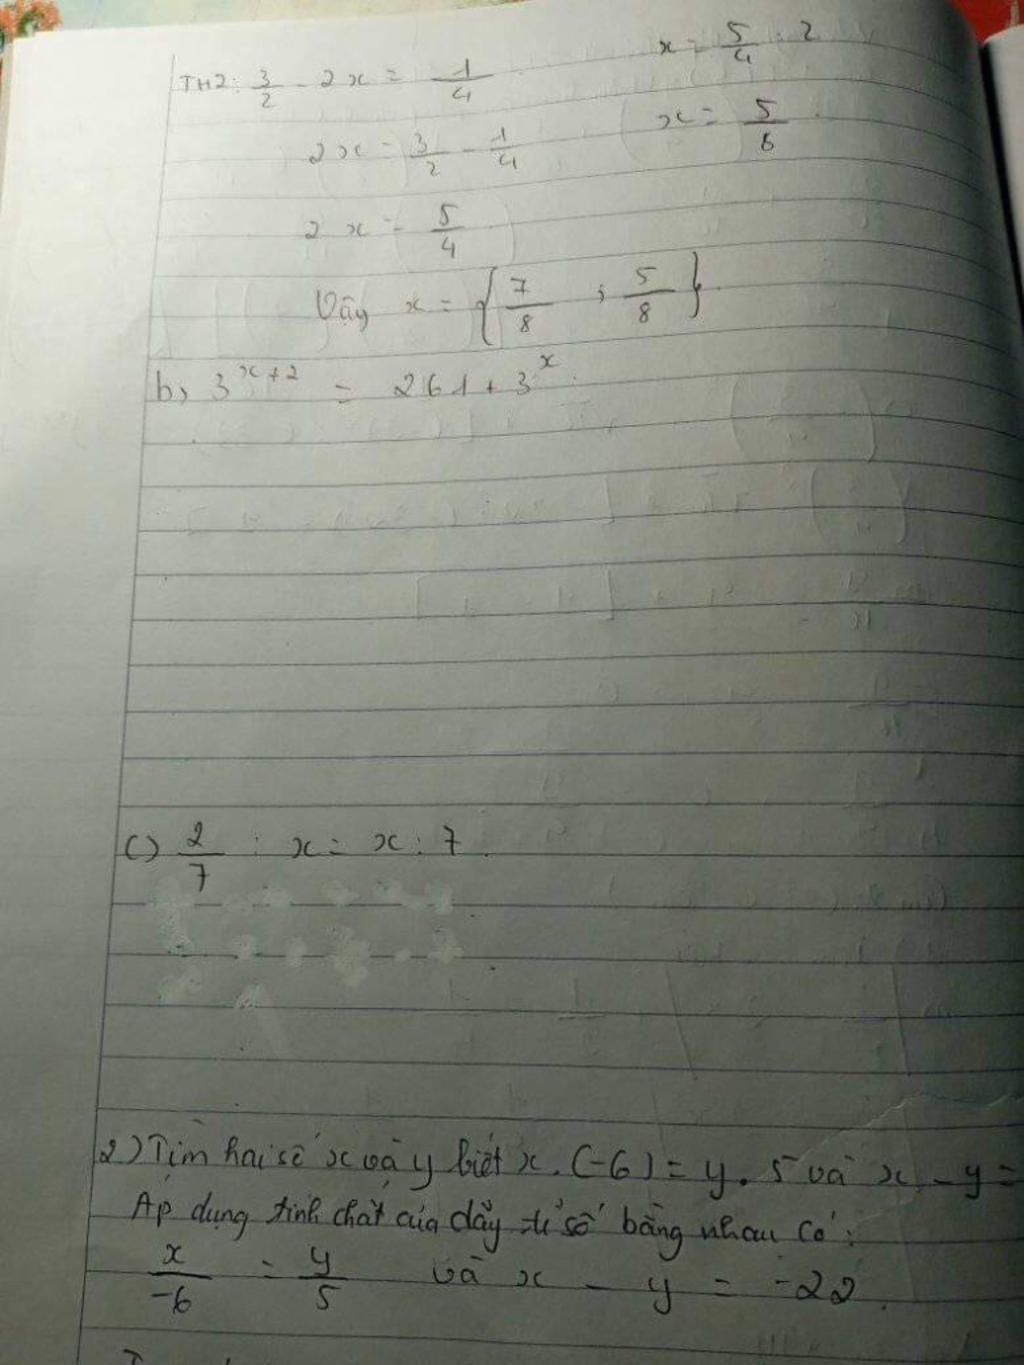 TH2: 3/2 - 2x = 1/4
2x = 3/2 - 1/4
2x = 5/4
x = 5/4 : 2
x = 5/8
Vậy x = {7/8 ; 5/8}.
b, 3^(x+2) = 261 + 3^x.
c) 2/7 : x = x : 7.
2) Tìm hai số x và y biết x. (-6) = y. 5 và x - y =
Áp dụng tính chất của dãy tỉ số bằng nhau có:
x/-6 = y/5 và x - y = -22.